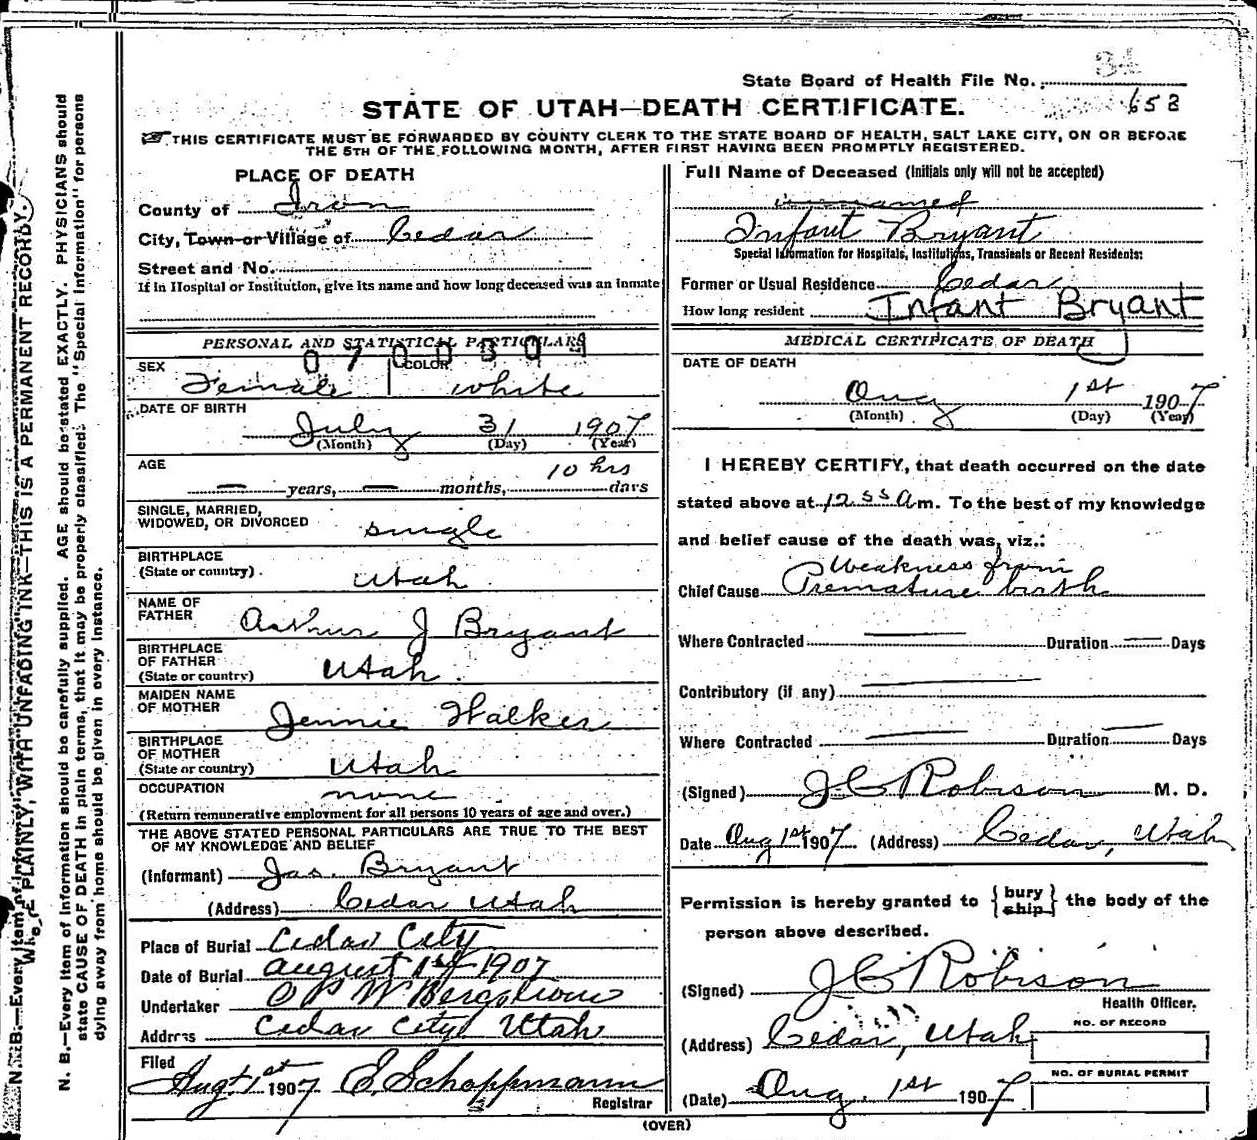 34
State Board of Health File No.
653
STATE OF UTAH—DEATH CERTIFICATE.
THIS CERTIFICATE MUST BE FORWARDED BY COUNTY CLERK TO THE STATE BOARD OF HEALTH, SALT LAKE CITY, ON OR BEFORE
THE 5TH OF THE FOLLOWING MONTH, AFTER FIRST HAVING BEEN PROMPTLY REGISTERED.
PLACE OF DEATH
County of Iron
City, Town or Village of Cedar
Street and No.
If in Hospital or Institution, give its name and how long deceased was an inmate
PERSONAL AND STATISTICAL PARTICULARS
SEX Female COLOR white
DATE OF BIRTH
July 31 1907
(Month) (Day) (Year)
AGE 10 hrs
— years, — months, days
SINGLE, MARRIED,
WIDOWED, OR DIVORCED single
BIRTHPLACE
(State or country) Utah
NAME OF
FATHER Arthur J Bryant
BIRTHPLACE
OF FATHER
(State or country) Utah
MAIDEN NAME
OF MOTHER Jennie Walker
BIRTHPLACE
OF MOTHER
(State or country) Utah
OCCUPATION none
(Return remunerative employment for all persons 10 years of age and over.)
THE ABOVE STATED PERSONAL PARTICULARS ARE TRUE TO THE BEST
OF MY KNOWLEDGE AND BELIEF
(Informant) Jas. Bryant
(Address) Cedar Utah
Place of Burial Cedar City
Date of Burial August 1st 1907
Undertaker O P W Bergstrom
Address Cedar City Utah
Filed
Aug. 1st 1907 E. Schoppmann
Registrar
Full Name of Deceased (Initials only will not be accepted)
unnamed
Infant Bryant
Special Information for Hospitals, Institutions, Transients or Recent Residents:
Former or Usual Residence Cedar
How long resident Infant Bryant
MEDICAL CERTIFICATE OF DEATH
DATE OF DEATH
Aug 1st 1907
(Month) (Day) (Year)
I HEREBY CERTIFY, that death occurred on the date
stated above at 12 55 A m. To the best of my knowledge
and belief cause of the death was, viz.:
Weakness from
Chief Cause Premature birth
Where Contracted — Duration — Days
Contributory (if any) —
Where Contracted — Duration — Days
(Signed) J C Robison M. D.
Date Aug 1st 1907. (Address) Cedar, Utah
Permission is hereby granted to { bury ship } the body of the
person above described.
(Signed) J C Robison
Health Officer.
(Address) Cedar, Utah
NO. OF RECORD
NO. OF BURIAL PERMIT
(Date) Aug. 1st 1907
(OVER)
PLAINLY, WITH UNFADING INK—THIS IS A PERMANENT RECORD.
N. B.—Every item of information should be carefully supplied. AGE should be stated EXACTLY. PHYSICIANS should
state CAUSE OF DEATH in plain terms, that it may be properly classified. The "Special Information" for persons
dying away from home should be given in every instance.